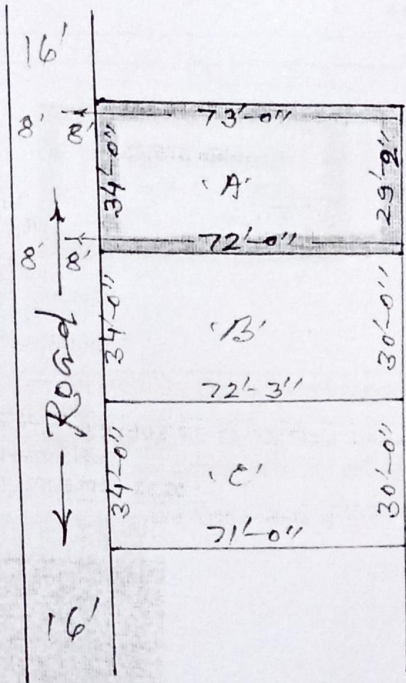 16'
73'-0"
8' 8'
34'-0" 'A' 29'-2"
8' 8' 72'-0"
Road
34'-0" 'B' 30'-0"
72'-3"
34'-0" 'C' 30'-0"
71'-0"
16'